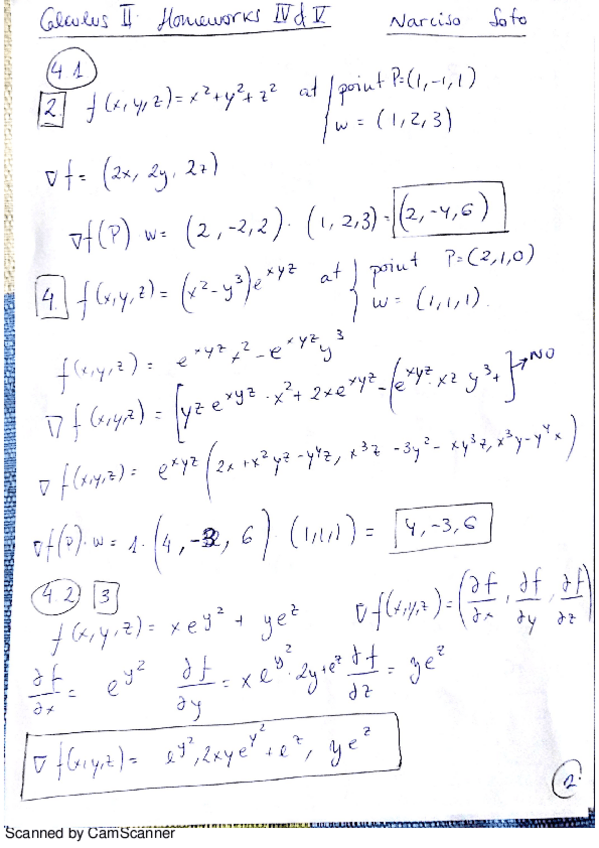 Calculus II Homeworks IV & V Narciso Soto
4.1
2. f(x,y,z)=x²+y²+z² at { point P=(1,-1,1)
w = (1,2,3)
∇f = (2x, 2y, 2z)
∇f(P) w = (2,-2,2) · (1,2,3) = (2,-4,6)
4. f(x,y,z) = (x²-y³)e^xyz at { point P=(2,1,0)
w = (1,1,1)
f(x,y,z) = e^xyz x² - e^xyz y³
∇f(x,y,z) = [yz e^xyz · x² + 2x e^xyz - (e^xyz · xz y³ + ] → NO
∇f(x,y,z) = e^xyz (2x + x²yz - y⁴z, x³z - 3y² - xy³z, x³y - y⁴x)
∇f(P)·w = 1·(4, -3, 6) · (1,1,1) = 4,-3,6
4.2 3
f(x,y,z) = xe^y² + ye^z ∇f(x,y,z) = (∂f/∂x, ∂f/∂y, ∂f/∂z)
∂f/∂x = e^y² ∂f/∂y = xe^y² · 2y + e^z ∂f/∂z = ye^z
∇f(x,y,z) = e^y², 2xye^y² + e^z, ye^z
2
Scanned by CamScanner